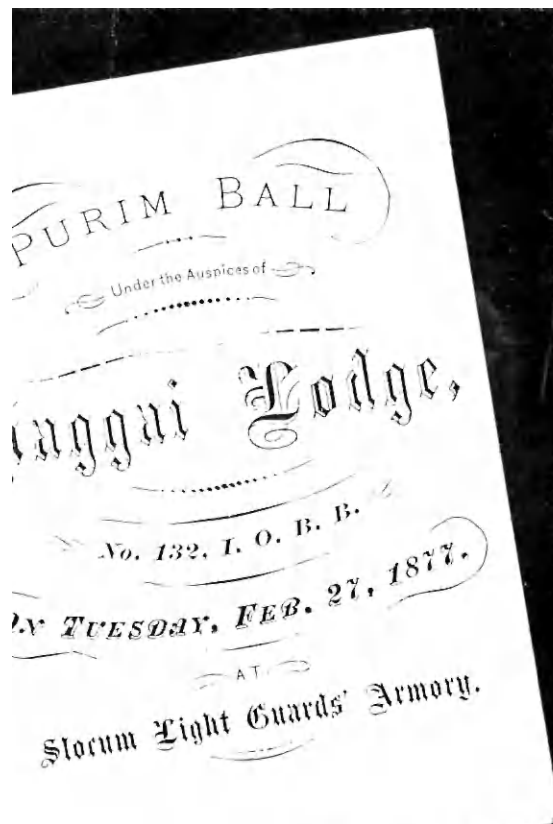 PURIM BALL
Under the Auspices of
Lodge,
No. 132, I. O. B. B.
ON TUESDAY, FEB. 27, 1877.
AT
Slocum Light Guards' Armory.